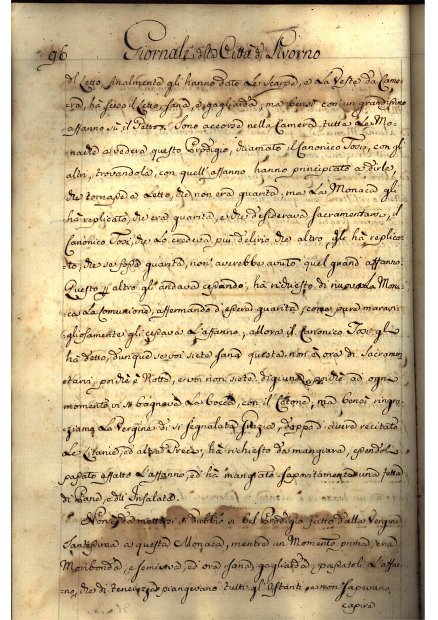 96 Giornale della Città di Livorno
del Letto, finalmente gli hanno dato le scarpe, e la Veste da Came-
ra, hà sceso il Letto, sana, e gagliarda, ma bensì con un grandissimo
affanno sù il Petto. Sono accorse nella Camera tutte le Mo-
nache a vedere questo Prodigio, chiamato il Canonico Tosi, con gli
altri, trovandola con quell'affanno hanno principiato a dirle,
che tornasse a Letto, che non era guarita, ma la Monaca gli
hà replicato, che era guarita, e che desiderava sacramentarsi, il
Canonico Tosi, che lo credeva più delirio che altro, gle hà replica-
to, che se fosse guarita, non averebbe avuto quel grand'affanno.
Questo p altro gl'andava cessando, hà richiesto di nuovo la Mona-
ca la Comunione, affermando d'essere guarita, come pure maravi-
gliosamente gli cessava l'affanno, allora il Canonico Tosi gli
hà detto, dunque se voi siete sana questa non è ora di Sacramen-
tarvi, perchè è Notte, e voi non siete digiuna perchè ad ogni
momento vi si bagnava la bocca con il Cotone, ma bensì ringra-
ziamo la Vergine di sì segnalata Grazia, e doppo d'avere recitato
le Litanie, ed altre Preci, hà richiesto da mangiare, essendoli
passato affatto l'affanno, ed hà mangiato saporitamente una fetta
di Pane, e dell'Insalata.
Non è da mettersi in dubbio sì bel Prodigio fatto dalla Vergine
Santissima a questa Monaca, mentre un Momento prima, era
Moribonda, e semiviva, ed ora sana, gagliarda, passatoli l'affan-
no, che di tenerezza piangevano tutti gl'Astanti, e non sapevano
capire